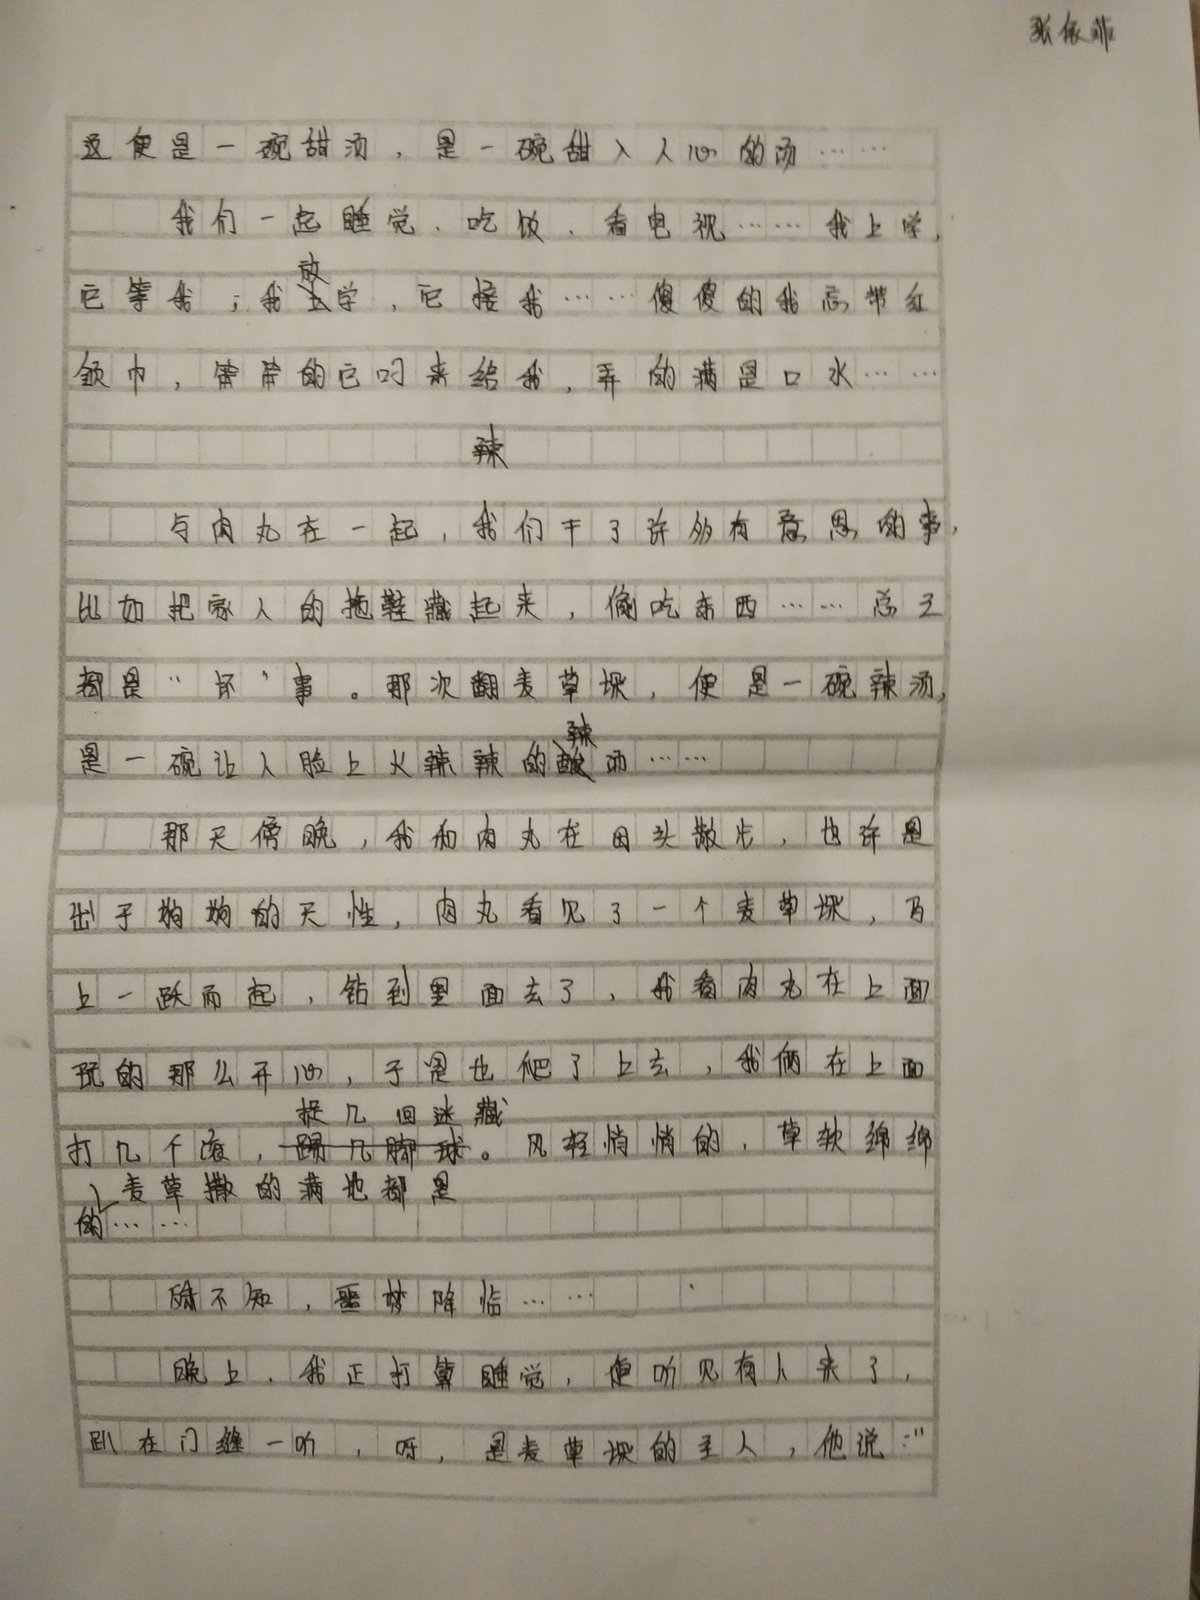 张依菲
这便是一碗甜汤，是一碗甜入人心的汤……
我们一起睡觉、吃饭、看电视……我上学，
它等我；我放学，它接我……傻傻的我忘带红
领巾，笨笨的它叼来给我，弄的满是口水……
辣
与肉丸在一起，我们干了许多有意思的事，
比如把家人的拖鞋藏起来，偷吃东西……总之
都是“坏”事。那次翻麦草垛，便是一碗辣汤，
是一碗让人脸上火辣辣的辣汤……
那天傍晚，我和肉丸在田头散步，也许是
出于狗狗的天性，肉丸看见了一个麦草垛，马
上一跃而起，钻到里面去了，我看肉丸在上面
玩的那么开心，于是也爬了上去，我俩在上面
打几个滚，捉几回迷藏。风轻悄悄的，草软绵绵
的，麦草撒的满地都是……
殊不知，噩梦降临……
晚上，我正打算睡觉，便听见有人来了，
趴在门缝一听，呀，是麦草垛的主人，他说：“